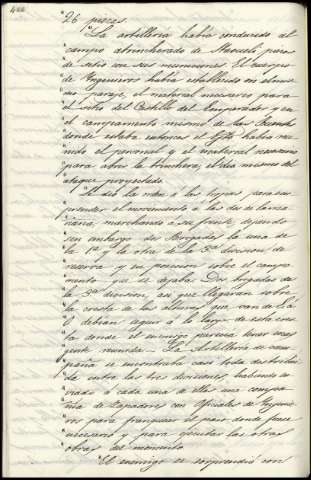 26 piezas.
La artillería había conducido al
campo atrincherado de Staoueli, piezas
de sitio con sus municiones. El cuerpo
de Ingenieros había establecido en el mismo
paraje, el material necesario para
el sitio del Castillo del Emperador y en
el campamento mismo de
donde estaba entonces el había reu-
nido el personal y el material necesario
para abrir la trinchera, el día mismo del
ataque proyectado.
Se dio la orden á las tropas para em-
prender el movimiento á las dos de la ma-
ñana, marchando á su frente, dejando
sin embargo dos Brigadas la una de
la 1ª y la otra de la 3ª division de
reserva y en posicion sobre el campa-
mento que se dejaba. Dos brigadas de
la 3ª division, así que llegaran sobre
la cresta de las alturas que van de E. á
O. debian seguir á lo largo de esta cres-
ta donde el enemigo parecia tener mas
gente reunida. La Artillería de cam-
paña se encontraba casi toda distribui-
da entre las tres divisiones, habiendo en-
viado á cada una de ellas una compa-
ñia de Zapadores con Oficiales de Ingenie-
ros para franquear el paso donde fuese
necesario y para ejecutar las otras
obras del momento.
El enemigo se sorprendió con